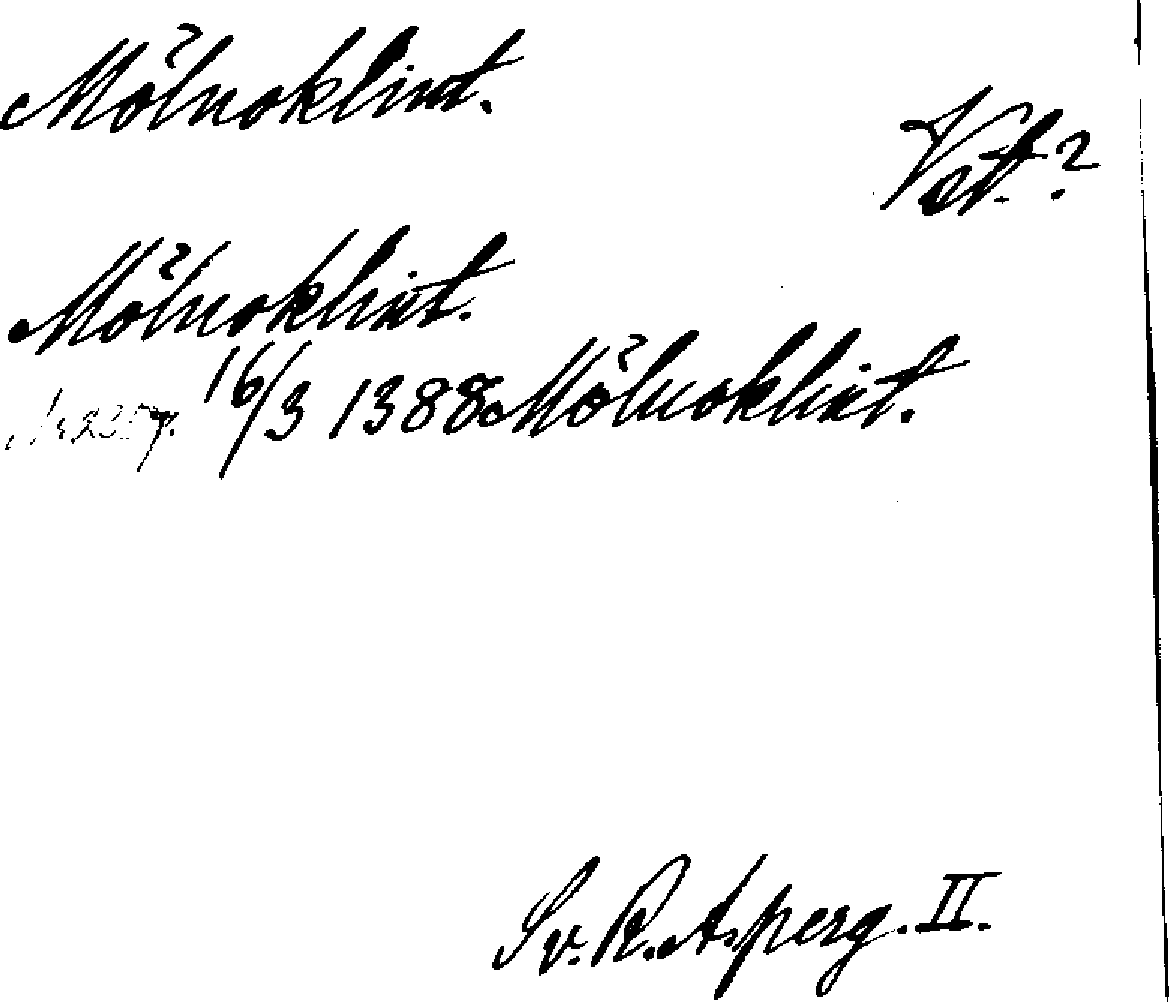 Mölnoklint.
Vet.?
Mölnoklint.
Nr 2359. 16/3 1388 Mölnoklint.
Sv. R. A. perg. II.